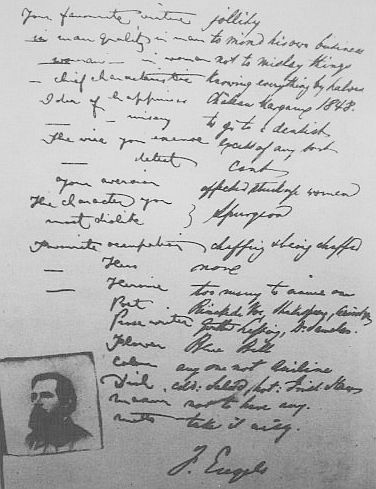 Your favourite virtue jollity
quality in man to mind his own business
— in woman not to mislay things
— chief characteristic knowing everything by halves
Idea of happiness Château Margaux 1848.
— — misery to go to a dentist
The vice you excuse excess of any sort
— detest Cant
Your aversion affected stuck up women
The character you } Spurgeon
most dislike
Favourite occupation chaffing & being chaffed
— Hero none
— Heroine too many to name one
Poet Shakespeare, Ariosto
Prose writer Goethe, Lessing, Dr. Samelson
Flower Blue Bell
Colour any one not Aniline
Dish cold: Salad, hot: Irish Stew
Maxim not to have any.
Motto take it aisy.
F. Engels